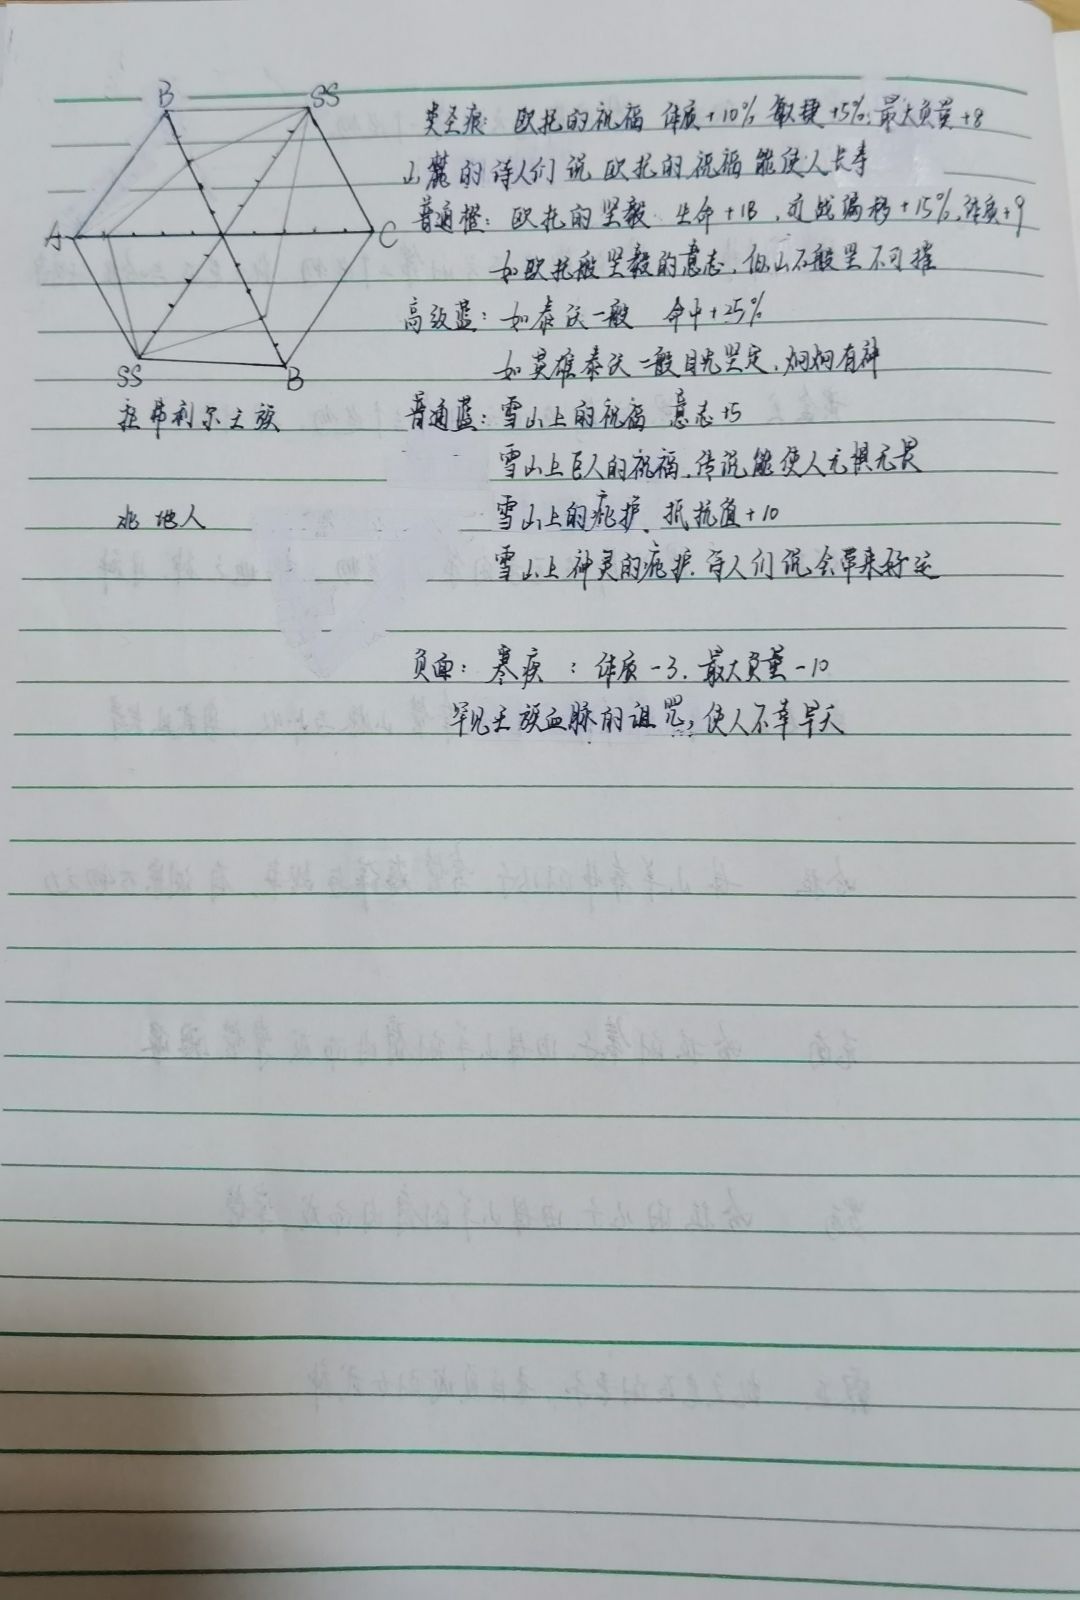 B
SS
A
C
SS
B
类圣痕：欧托的祝福 体质+10% 敏捷+5%，最大负重+8
山麓的诗人们说欧托的祝福能使人长寿
普通橙：欧托的坚毅 生命+18，近战偏移+15%，体质+9
如欧托般坚毅的意志，似山石般坚不可摧
高级蓝：如泰沃一般 命中+25%
如英雄泰沃一般目光坚定，炯炯有神
普通蓝：雪山上的祝福 意志+5
雪山上巨人的祝福，传说能使人无惧无畏
雪山上的庇护、抵抗值+10
雪山上神灵的庇护，诗人们说会带来好运
弗利尔王族
北地人
负面：寒疾：体质-3，最大负重-10
罕见王族血脉的诅咒，使人不幸早夭